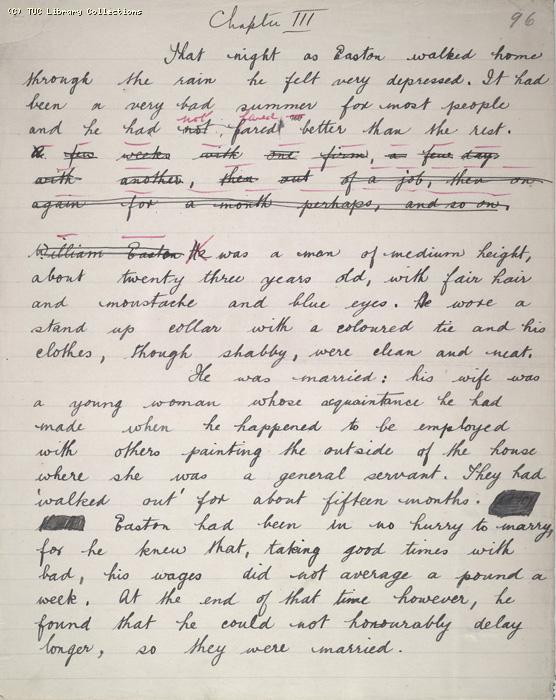 (C) TUC Library Collections
Chapter III
96
That night as Easton walked home
through the rain he felt very depressed. It had
been a very bad summer for most people
not fared
and he had not fared better than the rest.
A few weeks with one firm, a few days
with another, then out of a job, then on
again for a month perhaps, and so on.
William Easton He was a man of medium height,
about twenty three years old, with fair hair
and moustache and blue eyes. He wore a
stand up collar with a coloured tie and his
clothes, though shabby, were clean and neat.
He was married: his wife was
a young woman whose acquaintance he had
made when he happened to be employed
with others painting the outside of the house
where she was a general servant. They had
'walked out' for about fifteen months.
Easton had been in no hurry to marry,
for he knew that, taking good times with
bad, his wages did not average a pound a
week. At the end of that time however, he
found that he could not honourably delay
longer, so they were married.